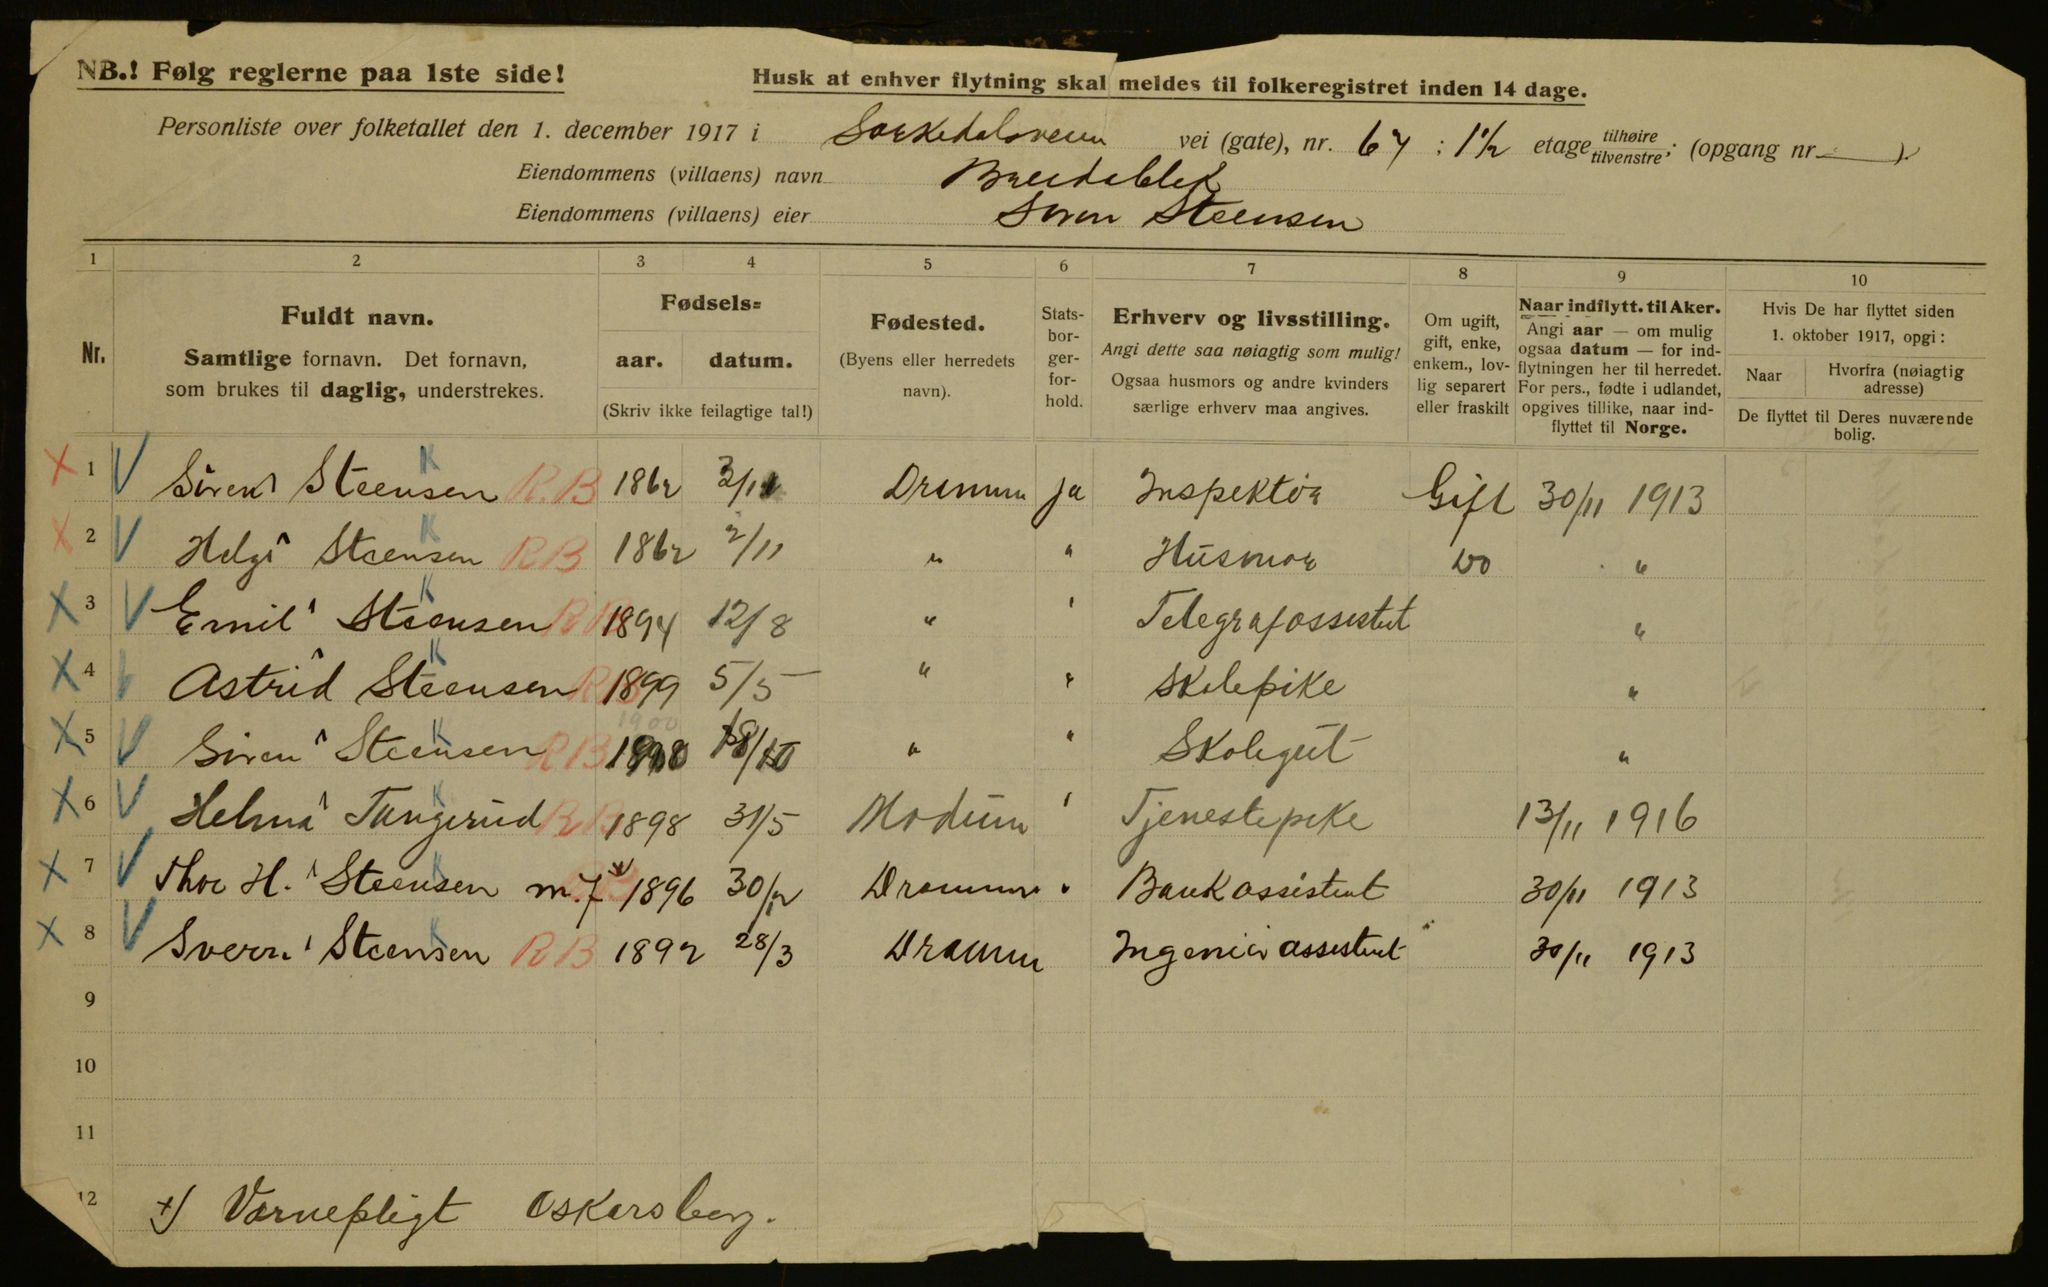 NB.! Følg reglerne paa 1ste side!
Husk at enhver flytning skal meldes til folkeregistret inden 14 dage.
Personliste over folketallet den 1. december 1917 i Sørkedalsveien vei (gate), nr. 67 ; 1 1/2 etage tilhøire tilvenstre; (opgang nr — ).
Eiendommens (villaens) navn Breidablik
Eiendommens (villaens) eier Søren Steensen
1 2 3 4 5 6 7 8 9 10
Nr.
Fuldt navn.
Samtlige fornavn. Det fornavn,
som brukes til daglig, understrekes.
Fødsels=
aar. datum.
(Skriv ikke feilagtige tal!)
Fødested.
(Byens eller herredets
navn).
Stats-
bor-
ger-
for-
hold.
Erhverv og livsstilling.
Angi dette saa nøiagtig som mulig!
Ogsaa husmors og andre kvinders
særlige erhverv maa angives.
Om ugift,
gift, enke,
enkem., lov-
lig separert
eller fraskilt
Naar indflytt. til Aker.
Angi aar — om mulig
ogsaa datum — for ind-
flytningen her til herredet.
For pers., fødte i udlandet,
opgives tillike, naar ind-
flyttet til Norge.
Hvis De har flyttet siden
1. oktober 1917, opgi:
Naar
Hvorfra (nøiagtig
adresse)
De flyttet til Deres nuværende
bolig.
X 1 V Søren Steensen K R.B 1862 3/11 Drammen ja Inspektør Gift 30/11 1913
X 2 V Helga Steensen K RB 1862 2/11 " " Husmor Do "
X 3 V Emil Steensen K RB 1894 12/8 " " Telegrafassistent "
X 4 V Astrid Steensen K RB 1899 5/5 " " Skolepike "
1900
X 5 V Søren Steensen K RB 18/10 " " Skolegut "
X 6 V Helma Tangerud K RB 1898 31/5 Modum " Tjenestepike 13/11 1916
X 7 V Thor H. Steensen K m.7 1896 30/12 Drammen " Bankassistent 30/11 1913
X 8 V Sverre Steensen K RB 1892 28/3 Drammen Ingeniør assistent " 30/11 1913
9
10
11
12 x) Værnepligt Oskarsborg.